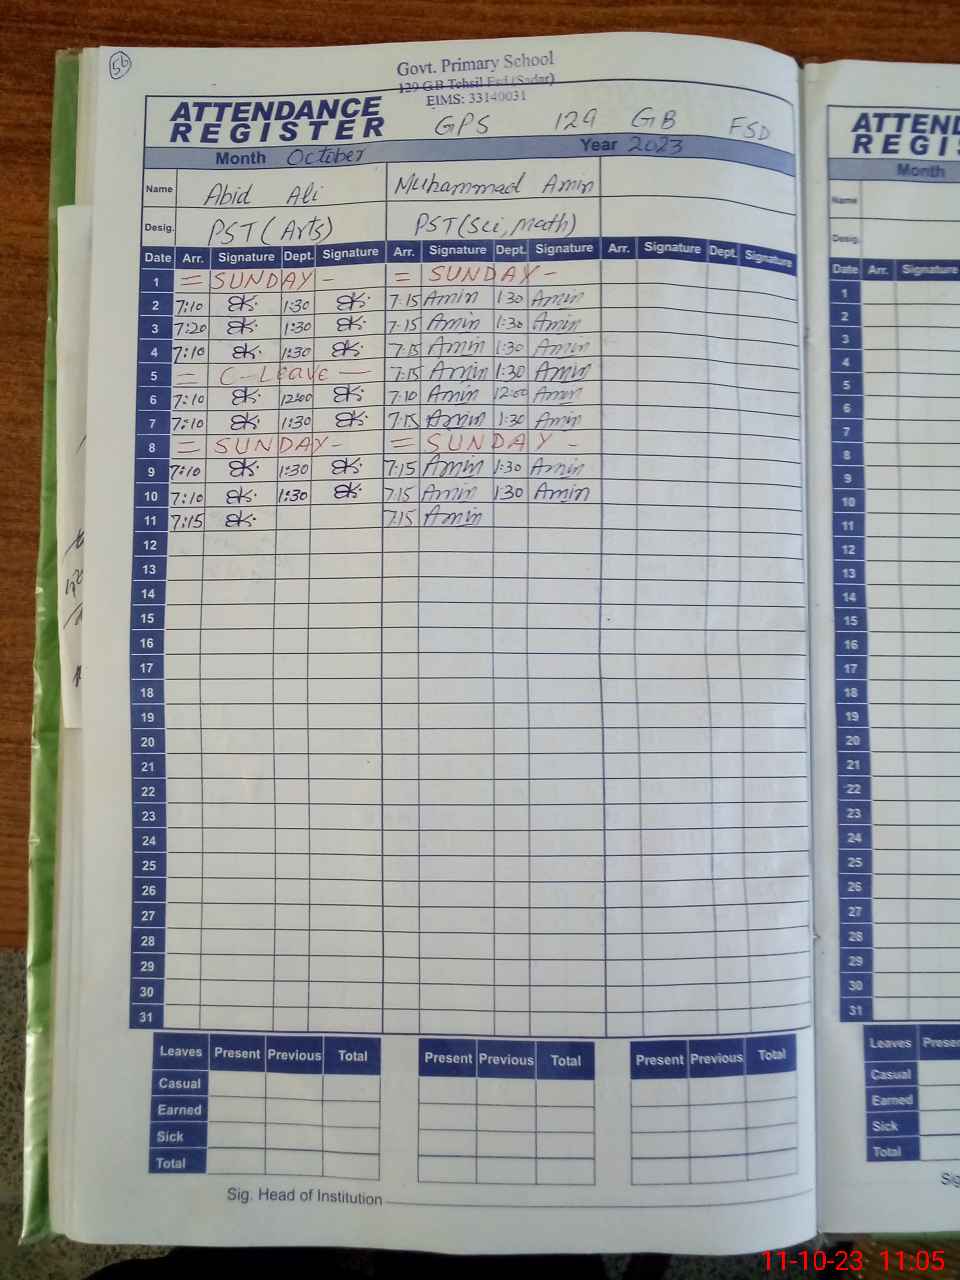 56
Govt. Primary School
129 GB Tehsil Fsd (Sadar)
EIMS: 33140031
ATTENDANCE
REGISTER
GPS 129 GB FSD
Month October Year 2023
Name Abid Ali Muhammad Amin
Desig. PST (Arts) PST (Sci, Math)
Date Arr. Signature Dept. Signature Arr. Signature Dept. Signature Arr. Signature Dept. Signature
1 = SUNDAY - = SUNDAY -
2 7:10 1:30 7:15 Amin 1:30 Amin
3 7:20 1:30 7:15 Amin 1:30 Amin
4 7:10 1:30 7:15 Amin 1:30 Amin
5 = C-Leave — 7:15 Amin 1:30 Amin
6 7:10 12:00 7:10 Amin 12:00 Amin
7 7:10 1:30 7:15 Amin 1:30 Amin
8 = SUNDAY - = SUNDAY -
9 7:10 1:30 7:15 Amin 1:30 Amin
10 7:10 1:30 7:15 Amin 1:30 Amin
11 7:15 7:15 Amin
12
13
14
15
16
17
18
19
20
21
22
23
24
25
26
27
28
29
30
31
Leaves Present Previous Total Present Previous Total Present Previous Total
Casual
Earned
Sick
Total
Sig. Head of Institution
ATTEND
REGIS
Month
Name
Desig.
Date Arr. Signature
1
2
3
4
5
6
7
8
9
10
11
12
13
14
15
16
17
18
19
20
21
22
23
24
25
26
27
28
29
30
31
Leaves Presen
Casual
Earned
Sick
Total
Sig
11-10-23 11:05